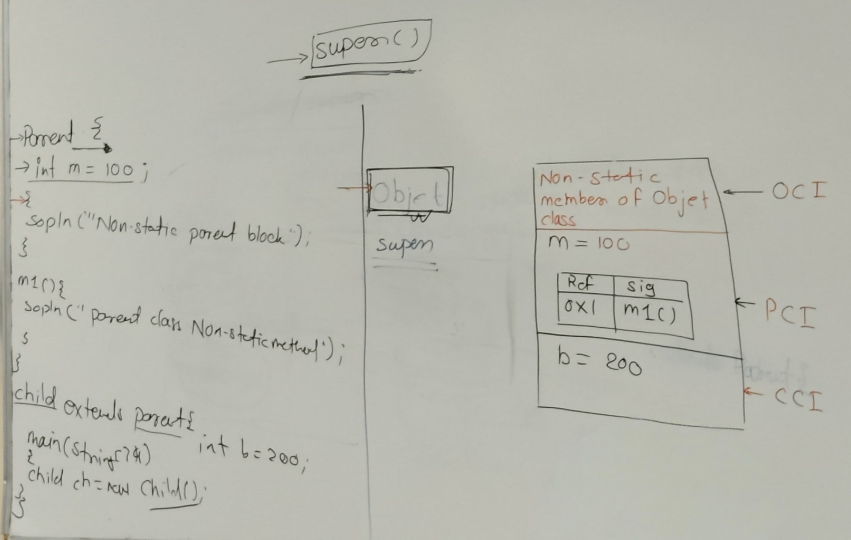 super()
→Parent {
→ int m = 100 ;
→{
sopln ("Non-static parent block");
}
m1(){
sopln (" parent class Non-static method");
}
}
child extends parent{
int b = 200;
main(String[]
{
child ch = new Child();
}
}
Objet
super
Non-static
member of Objet
class
← OCI
m = 100
Ref sig
0x1 m1()
← PCI
b = 200
← CCI